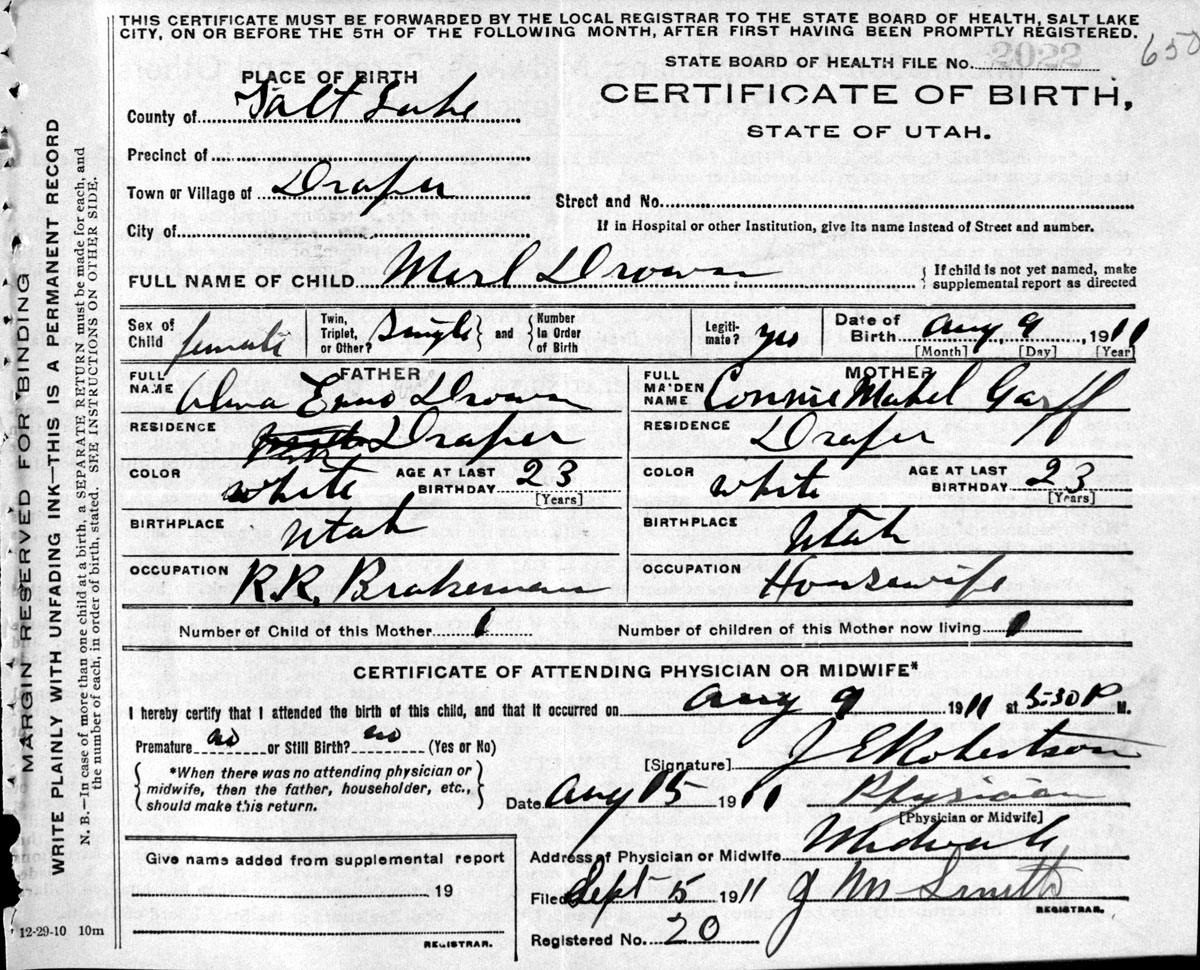 THIS CERTIFICATE MUST BE FORWARDED BY THE LOCAL REGISTRAR TO THE STATE BOARD OF HEALTH, SALT LAKE
CITY, ON OR BEFORE THE 5TH OF THE FOLLOWING MONTH, AFTER FIRST HAVING BEEN PROMPTLY REGISTERED.
650
STATE BOARD OF HEALTH FILE No. 2022
PLACE OF BIRTH
CERTIFICATE OF BIRTH,
STATE OF UTAH.
County of Salt Lake
Precinct of
Town or Village of Draper
Street and No.
City of
If in Hospital or other Institution, give its name instead of Street and number.
FULL NAME OF CHILD Merl Drown
If child is not yet named, make
supplemental report as directed
Sex of Child female
Twin, Triplet, or Other? Single and Number in Order of Birth
Legiti-mate? yes
Date of Birth Aug 9, 1911
[Month] [Day] [Year]
FATHER
FULL NAME Alma Enno Drown
MOTHER
FULL MAIDEN NAME Connie Mabel Garff
RESIDENCE Draper
RESIDENCE Draper
COLOR white AGE AT LAST BIRTHDAY 23 [Years]
COLOR white AGE AT LAST BIRTHDAY 23 [Years]
BIRTHPLACE Utah
BIRTHPLACE Utah
OCCUPATION R.R. Brakeman
OCCUPATION Housewife
Number of Child of this Mother 1
Number of children of this Mother now living 1
CERTIFICATE OF ATTENDING PHYSICIAN OR MIDWIFE*
I hereby certify that I attended the birth of this child, and that it occurred on Aug 9 1911 at 5:30 P M.
Premature no or Still Birth? no (Yes or No)
[Signature] J E Robertson
*When there was no attending physician or
midwife, then the father, householder, etc.,
should make this return.
Date Aug 15 1911 Physician
[Physician or Midwife]
Give name added from supplemental report
19
REGISTRAR.
Address of Physician or Midwife Midvale
Filed Sept 5 1911 J M Smith
REGISTRAR.
Registered No. 20
12-29-10 10m
MARGIN RESERVED FOR BINDING
WRITE PLAINLY WITH UNFADING INK—THIS IS A PERMANENT RECORD
N. B.—In case of more than one child at a birth, a SEPARATE RETURN must be made for each, and
the number of each, in order of birth, stated. SEE INSTRUCTIONS ON OTHER SIDE.